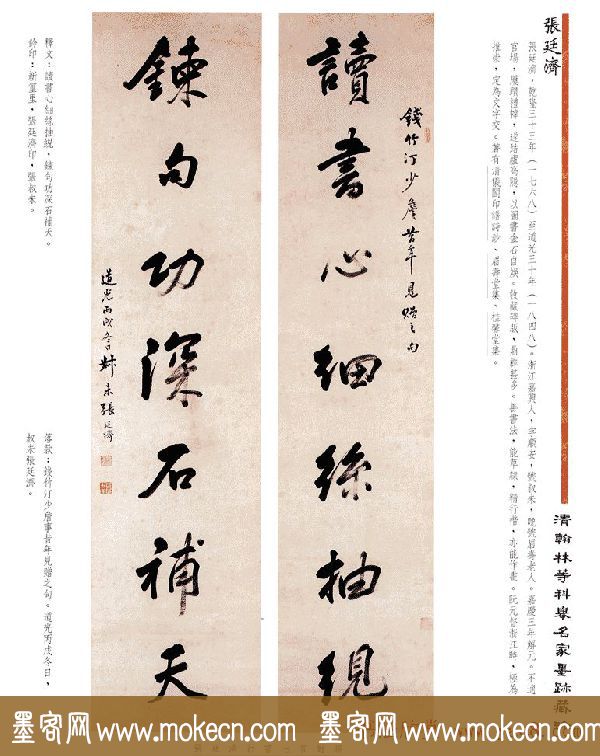 張廷濟
張廷濟，乾隆三十三年（一七六八）至道光三十年（一八四八）。浙江嘉興人，字順安，號叔未，晚號眉壽老人。嘉慶三年解元。不過
官場，
以圖書金石自娛。
善書法，能草隸，精行楷，亦能作畫。阮元督浙江時，極為
推崇，定為文字交。著有清儀閣印譜詩鈔、眉壽堂集、桂馨堂集。
清翰林等科舉名家墨跡藏
錢竹汀少詹昔年見贈之句
讀書心細絲抽繭
鍊句功深石補天
道光丙戌冬日叔未張廷濟
釋文：讀書心細絲抽繭，鍊句功深石補天。
鈐印：新篁里，張廷濟印，張叔未。
落款：錢竹汀少詹事昔年見贈之句。道光丙戌冬日，
叔未張廷濟。
墨客网 www.mokecn.com 墨客网 www.mokecn.com